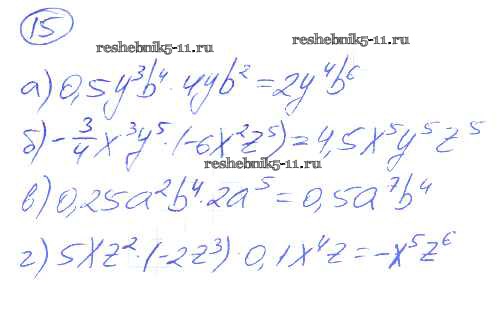 15
reshebnik5-11.ru
reshebnik5-11.ru
а) 0,5y³b⁴ · 4yb² = 2y⁴b⁶
б) -3/4 x³y⁵ · (-6x²z⁵) = 4,5x⁵y⁵z⁵
reshebnik5-11.ru
в) 0,25a²b⁴ · 2a⁵ = 0,5a⁷b⁴
г) 5xz² · (-2z³) · 0,1x⁴z = -x⁵z⁶